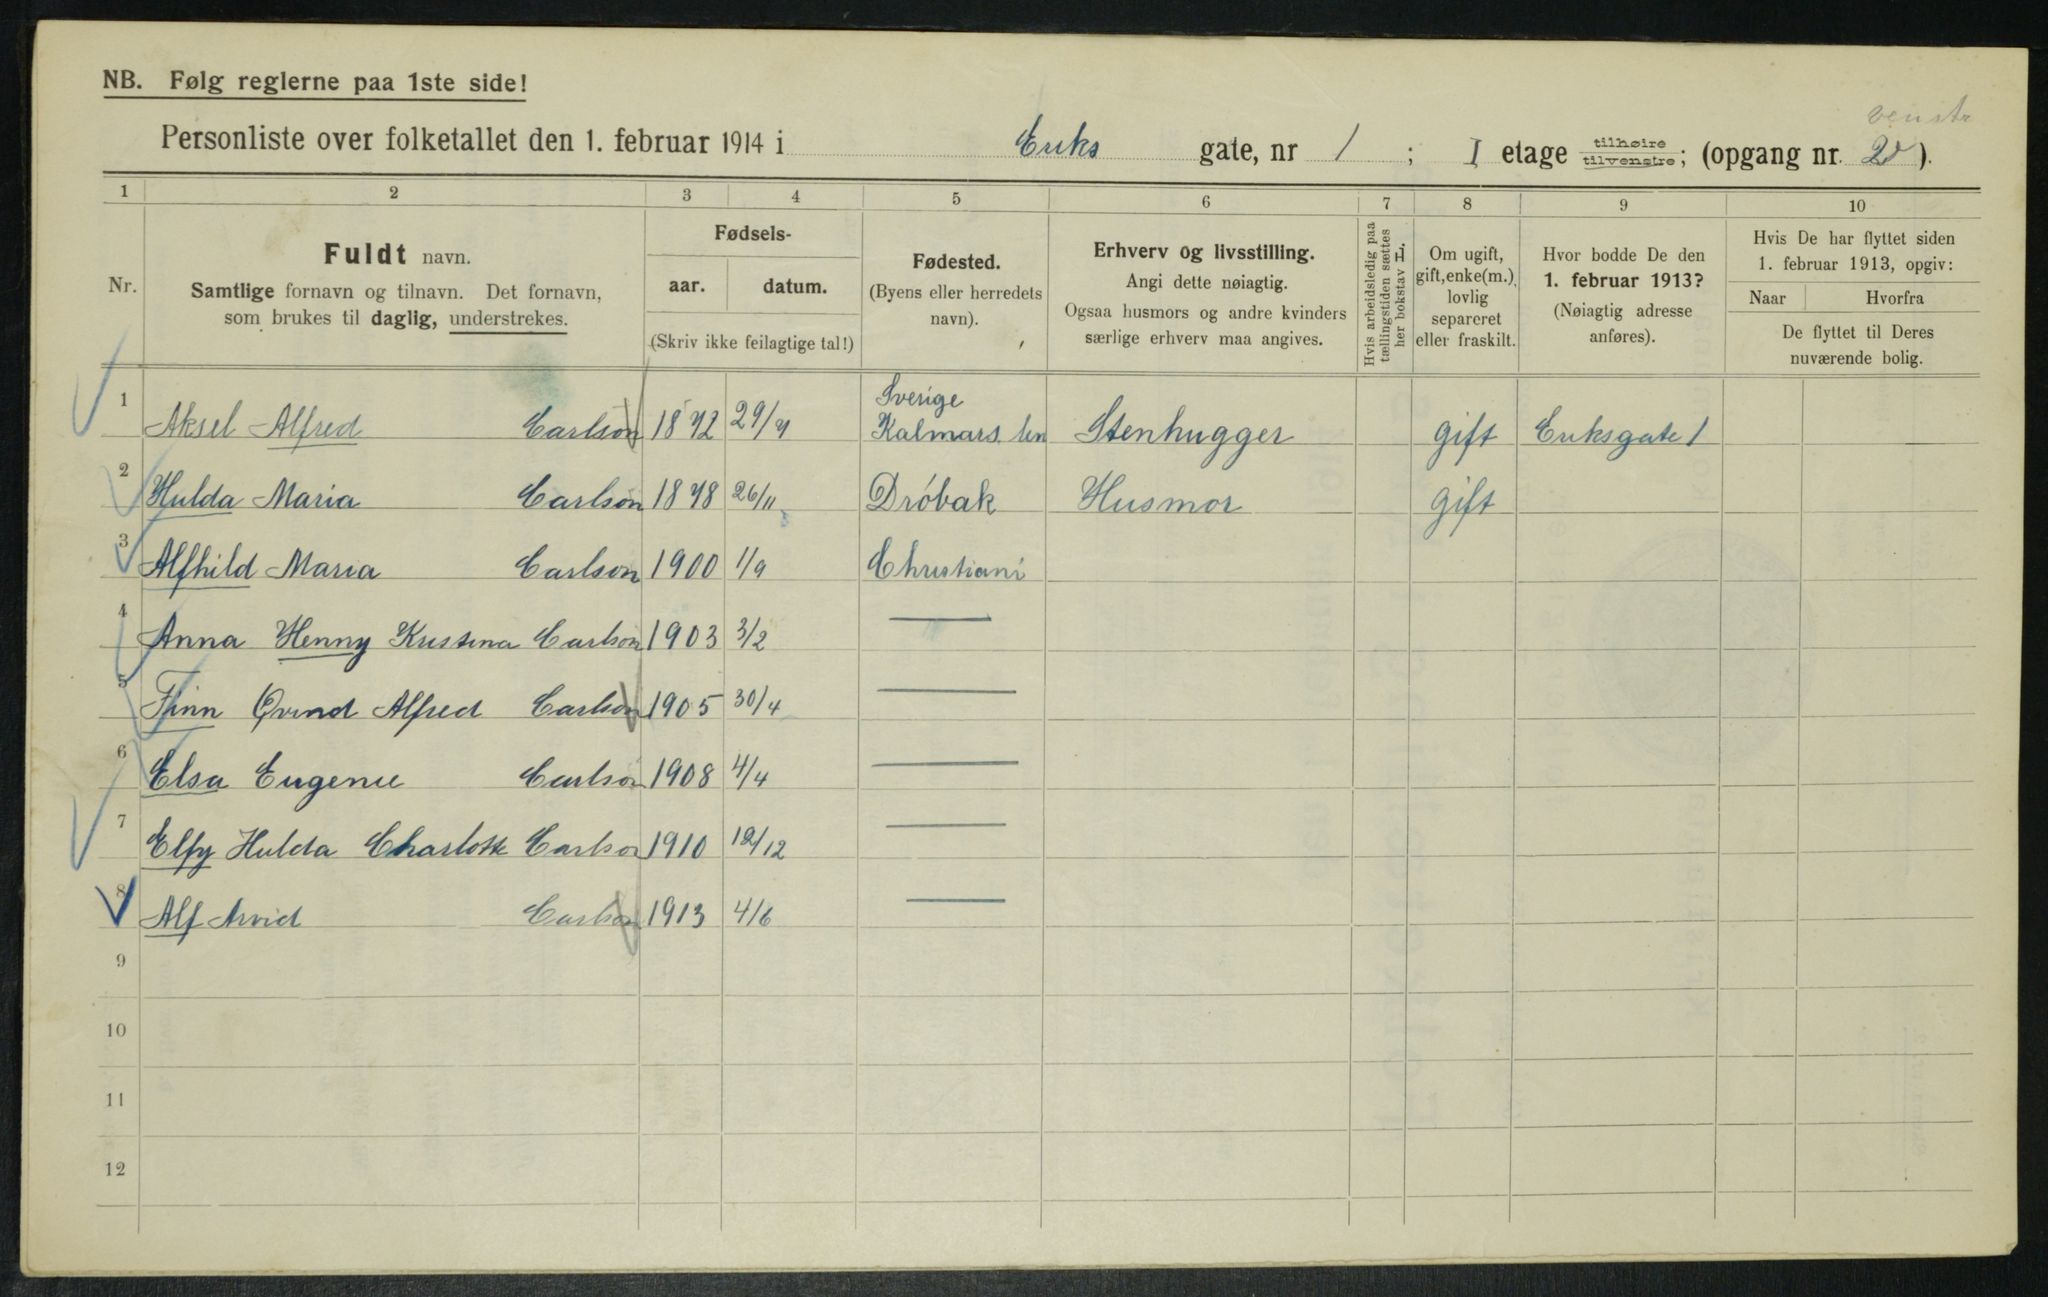 NB. Følg reglerne paa 1ste side!
venstr
Personliste over folketallet den 1. februar 1914 i Eriks gate, nr 1 ; I etage tilhøire tilvenstre; (opgang nr. 2 ).
1 2 3 4 5 6 7 8 9 10
Nr.
Fuldt navn.
Samtlige fornavn og tilnavn. Det fornavn,
som brukes til daglig, understrekes.
Fødsels-
aar. datum.
(Skriv ikke feilagtige tal!)
Fødested.
(Byens eller herredets
navn).
Erhverv og livsstilling.
Angi dette nøiagtig.
Ogsaa husmors og andre kvinders
særlige erhverv maa angives.
Hvis arbeidsledig paa
tællingstiden sættes
her bokstav L.
Om ugift,
gift, enke(m.),
lovlig
separeret
eller fraskilt.
Hvor bodde De den
1. februar 1913?
(Nøiagtig adresse
anføres).
Hvis De har flyttet siden
1. februar 1913, opgiv:
Naar Hvorfra
De flyttet til Deres
nuværende bolig.
1 Aksel Alfred Carlson 1872 29/7 Sverige Kalmars len Stenhugger gift Eriksgate 1
2 Hulda Maria Carlson 1878 26/11 Dröbak Husmor gift
3 Alfhild Maria Carlson 1900 1/9 Christiani
4 Anna Henny Kristina Carlson 1903 3/2 —
5 Finn Øvind Alfred Carlson 1905 30/4 —
6 Elsa Eugenie Carlson 1908 4/4 —
7 Elfy Hulda Charlotte Carlson 1910 12/12 —
8 Alf Arvid Carlson 1913 4/6 —
9
10
11
12